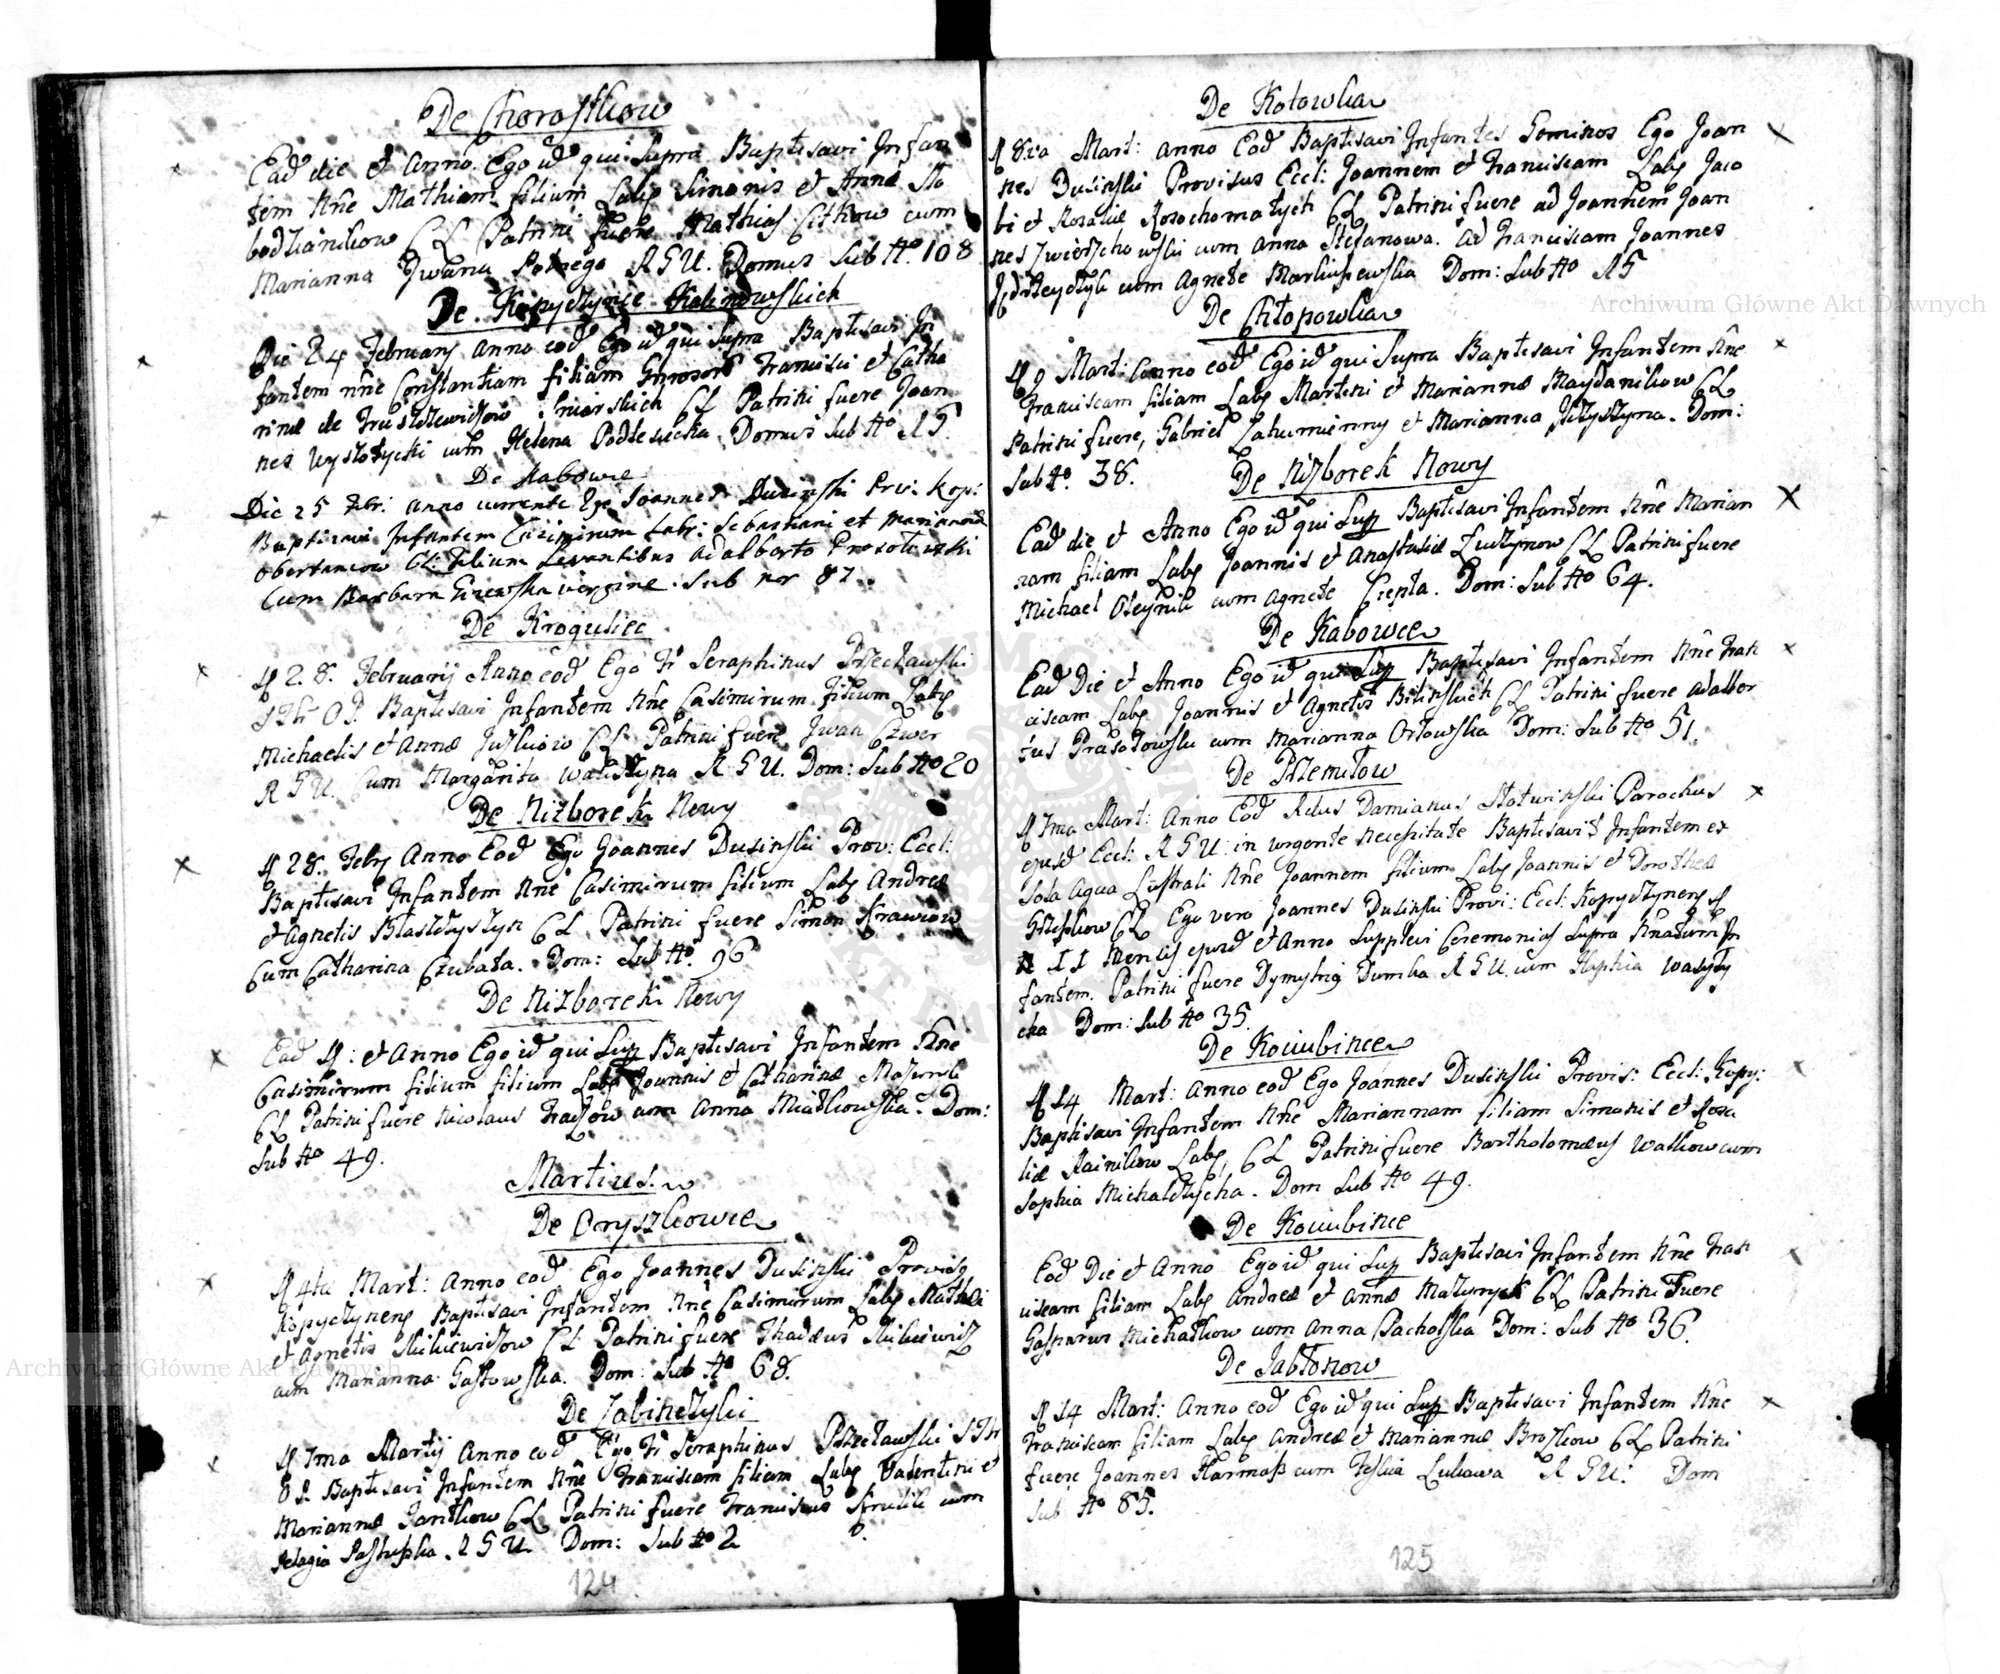 De Chorostkow
Ead die et Anno. Ego id qui Supra Baptisavi Infan
tem Nne Mathiam filium Lab Simonis et Annæ Slo
bodzianikow CL Patrini fuere Mathias Citkow cum
Marianna Iwana R G U. Domus Sub No. 108
De Kopyczynce Kalinowskich
Die 24 February anno eod Ego id qui Supra Baptisavi In
fantem nne Constantiam filiam Francisci et Catha
rinæ de CL Patrini fuere Joan
nes Wysłotycki cum Helena Podlesiecka Domus Sub No 15.
De Kabowce
Die 25 Febr: anno currente Ego Joannes Dusinski Prv: Kop:
Baptizavi Infantem Casimirum Labr: Sebastiani et Mariannæ
CL: filium Levantibus Adalberto Prasotowski
Cum Barbara virgine. Sub nr 82.
De Kroguliec
28. Februarij Anno eod Ego Fr Seraphinus Przecławski
O P. Baptisavi Infantem Nne Casimirum filium Lab
Michaelis et Annæ CL Patrini fuere Iwan
R G U. Cum Margarita R G U. Dom: Sub No 20
De Nizborek Nowy
28. Feb Anno Eod Ego Joannes Dusinski Prov: Eccl:
Baptisavi Infantem Nne Casimirum filium Lab Andreæ
et Agnetis CL Patrini fuere Simon Krawcow
Cum Catharina Czubata. Dom: Sub No. 96
De Nizborek Nowy
Ead : et Anno Ego id qui Sup Baptisavi Infantem Nne
Casimirum filium filium Lab Joannis et Catharinæ
CL Patrini fuere Nicolaus cum Anna Miatkowska. Dom:
Sub No 49.
Martius.
De Oryszkowce
4ta Mart: Anno eod Ego Joannes Dusinski Provis
Kopyczynens Baptisavi Infantem Nne Casimirum Lab Mathæi
et Agnetis CL Patrini fuere Thadæus
cum Marianna Gostowska. Dom: Sub No 68.
De Zabinczyki
7ma Martij Anno eod Ego Fr Seraphinus Przecławski
Baptisavi Infantem Nne Franciscam filiam Lab Valentini et
Mariannæ Jantkow CL Patrini fuere Franciscus cum
Pelagia Pastuszka. R G U Dom: Sub No 2
124
De Kotowka
8va Mart: anno Eod Baptisavi Infantes Geminos Ego Joan
nes Dusinski Provisus Eccl: Joannem et Franciscam Lab Jaco
bi et Rosaliæ Rosochomatych CL Patrini fuere ad Joannem Joan
nes cum Anna Stefanowa. Ad Franciscam Joannes
cum Agnete Dom: Sub No 15
De Chłopowka
9 Mart: Anno eod Ego id qui Supra Baptisavi Infantem Nne
Franciscam filiam Lab Martini et Mariannæ Maydanikow CL
Patrini fuere, Gabriel et Marianna Dom:
Sub No. 38.
De Nizborek Nowy
Ead die et Anno Ego id qui Sup Baptisavi Infantem Nne Marian
nam filiam Lab Joannis et Anastasiæ CL Patrini fuere
Michael Oleynik cum Agnete Ciepła. Dom: Sub No 64.
De Kabowce
Ead Die et Anno Ego id qui Sup Baptisavi Infantem Nne Fran
ciscam Lab Joannis et Agnetis Bilinskich CL Patrini fuere Adalber
tus Prasotowski cum Marianna Orłowska Dom: Sub No 51.
De Przemitow
7ma Mart: Anno Eod Damianus Stotwinski Parochus
ejusd Eccl: R G U: in urgente necessitate Baptisavit Infantem ex
sola Aqua Lustrali Nne Joannem filium Lab Joannis et Dorotheæ
CL Ego vero Joannes Dusinski Provi: Eccl: Kopyczynens
11 Mensis ejusd et Anno Supplevi Ceremonias Supra Nnatum In
fantem. Patrini fuere Dymytrius Dumka R G U. cum
Dom: Sub No 35.
De Kociubince
14 Mart: Anno eod Ego Joannes Dusinski Provis: Eccl: Kopy:
Baptisavi Infantem Nne Mariannam filiam Simonis et Rosa
liæ Lab, CL Patrini fuere Bartholomæus Watkow cum
Sophia Michalczycha. Dom Sub No 49.
De Kociubince
Eod Die et Anno Ego id qui Sup Baptisavi Infantem Nne Fran
ciscam filiam Lab Andreæ et Annæ Mazurych CL Patrini Fuere
Gasparus Michatkow cum Anna Pacholska Dom: Sub No 36.
De Jabłonow
14 Mart: Anno eod Ego id qui Sup Baptisavi Infantem Nne
Franciscam filiam Lab Andreæ et Mariannæ Brozkow CL Patrini
fuere Joannes cum R G U: Dom
Sub No 85.
125
Archiwum Główne Akt Dawnych
Archiwum Główne Akt Dawnych